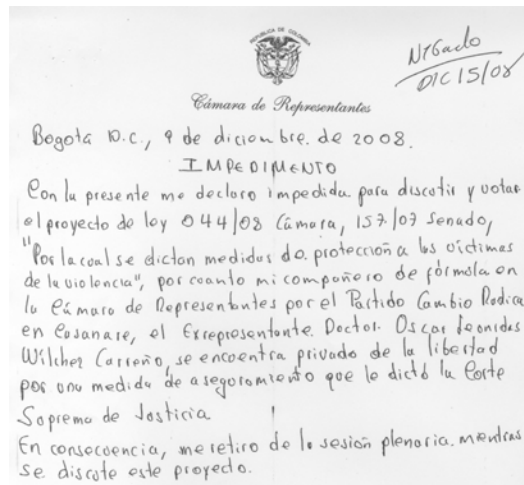 REPUBLICA DE COLOMBIA
Negado
DIC 15/08
Cámara de Representantes
Bogotá D.C., 9 de diciembre de 2008.
IMPEDIMENTO
Con la presente me declaro impedida para discutir y votar
el proyecto de ley 044/08 Cámara, 157/07 Senado,
"Por la cual se dictan medidas de protección a las víctimas
de la violencia", por cuanto mi compañero de fórmula en
la Cámara de Representantes por el Partido Cambio Radica
en Casanare, el Exrepresentante Doctor Oscar Leonidas
Wilcher Carreño, se encuentra privado de la libertad
por una medida de aseguramiento que le dictó la Corte
Suprema de Justicia
En consecuencia, me retiro de la sesión plenaria mientras
se discute este proyecto.